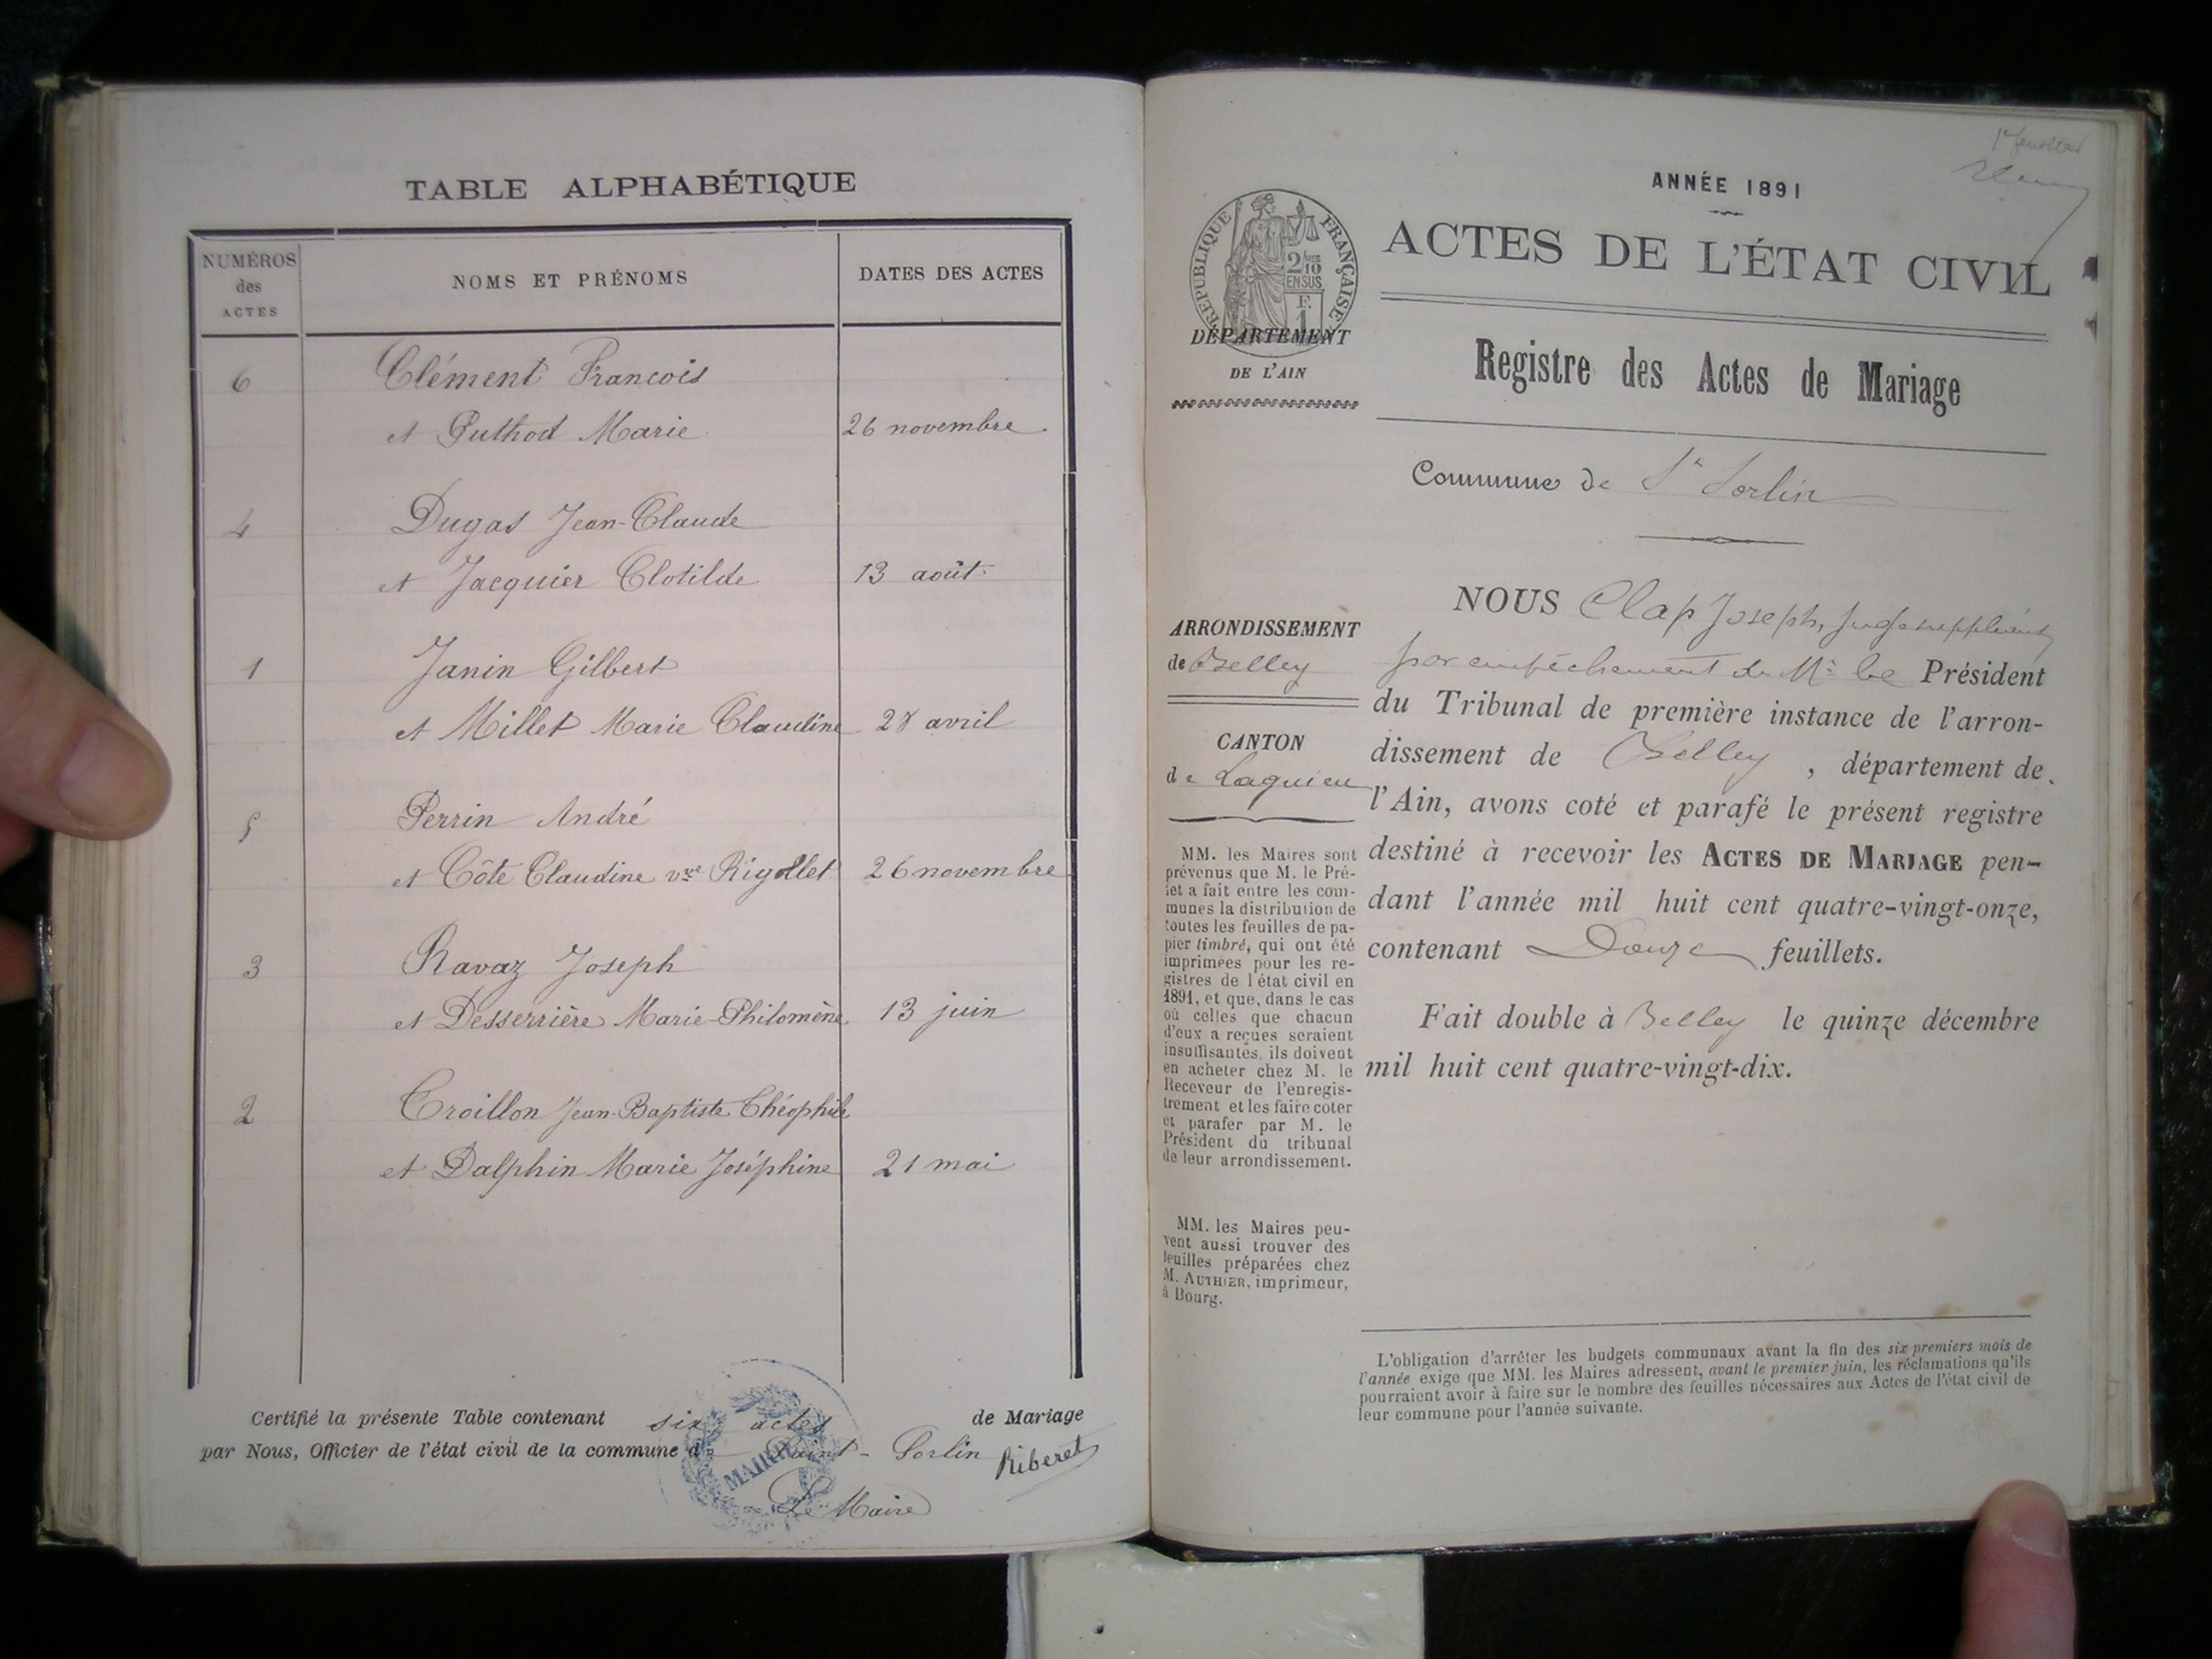 TABLE ALPHABÉTIQUE
NUMÉROS des ACTES
NOMS ET PRÉNOMS
DATES DES ACTES
6 Clément Francois
et Puthod Marie 26 novembre
4 Dugas Jean-Claude
et Jacquier Clotilde 13 août
1 Janin Gilbert
et Millet Marie Claudine 28 avril
5 Perrin André
et Côte Claudine vve Rigollet 26 novembre
3 Ravaz Joseph
et Desserrière Marie-Philomène 13 juin
2 Troillon Jean-Baptiste Théophile
et Dalphin Marie Joséphine 21 mai
Certifié la présente Table contenant six actes de Mariage
par Nous, Officier de l'état civil de la commune de Saint-Sorlin
Riberet
MAIRIE
Le Maire
1er feuillet
ANNÉE 1891
ACTES DE L'ÉTAT CIVIL
RÉPUBLIQUE FRANÇAISE
2/10 EN SUS
F. 1
DÉPARTEMENT
DE L'AIN
Registre des Actes de Mariage
Commune de St Sorlin
ARRONDISSEMENT
de Belley
CANTON
de Lagnieu
MM. les Maires sont
prévenus que M. le Pré-
fet a fait entre les com-
munes la distribution de
toutes les feuilles de pa-
pier timbré, qui ont été
imprimées pour les re-
gistres de l'état civil en
1891, et que, dans le cas
où celles que chacun
d'eux a reçues seraient
insuffisantes, ils doivent
en acheter chez M. le
Receveur de l'enregis-
trement et les faire coter
et parafer par M. le
Président du tribunal
de leur arrondissement.
MM. les Maires peu-
vent aussi trouver des
feuilles préparées chez
M. AUTHIER, imprimeur,
à Bourg.
NOUS Clap Joseph, Juge suppléant
par empêchement de Mr le Président
du Tribunal de première instance de l'arron-
dissement de Belley, département de
l'Ain, avons coté et parafé le présent registre
destiné à recevoir les ACTES DE MARIAGE pen-
dant l'année mil huit cent quatre-vingt-onze,
contenant Douze feuillets.
Fait double à Belley le quinze décembre
mil huit cent quatre-vingt-dix.
L'obligation d'arrêter les budgets communaux avant la fin des six premiers mois de
l'année exige que MM. les Maires adressent, avant le premier juin, les réclamations qu'ils
pourraient avoir à faire sur le nombre des feuilles nécessaires aux Actes de l'état civil de
leur commune pour l'année suivante.